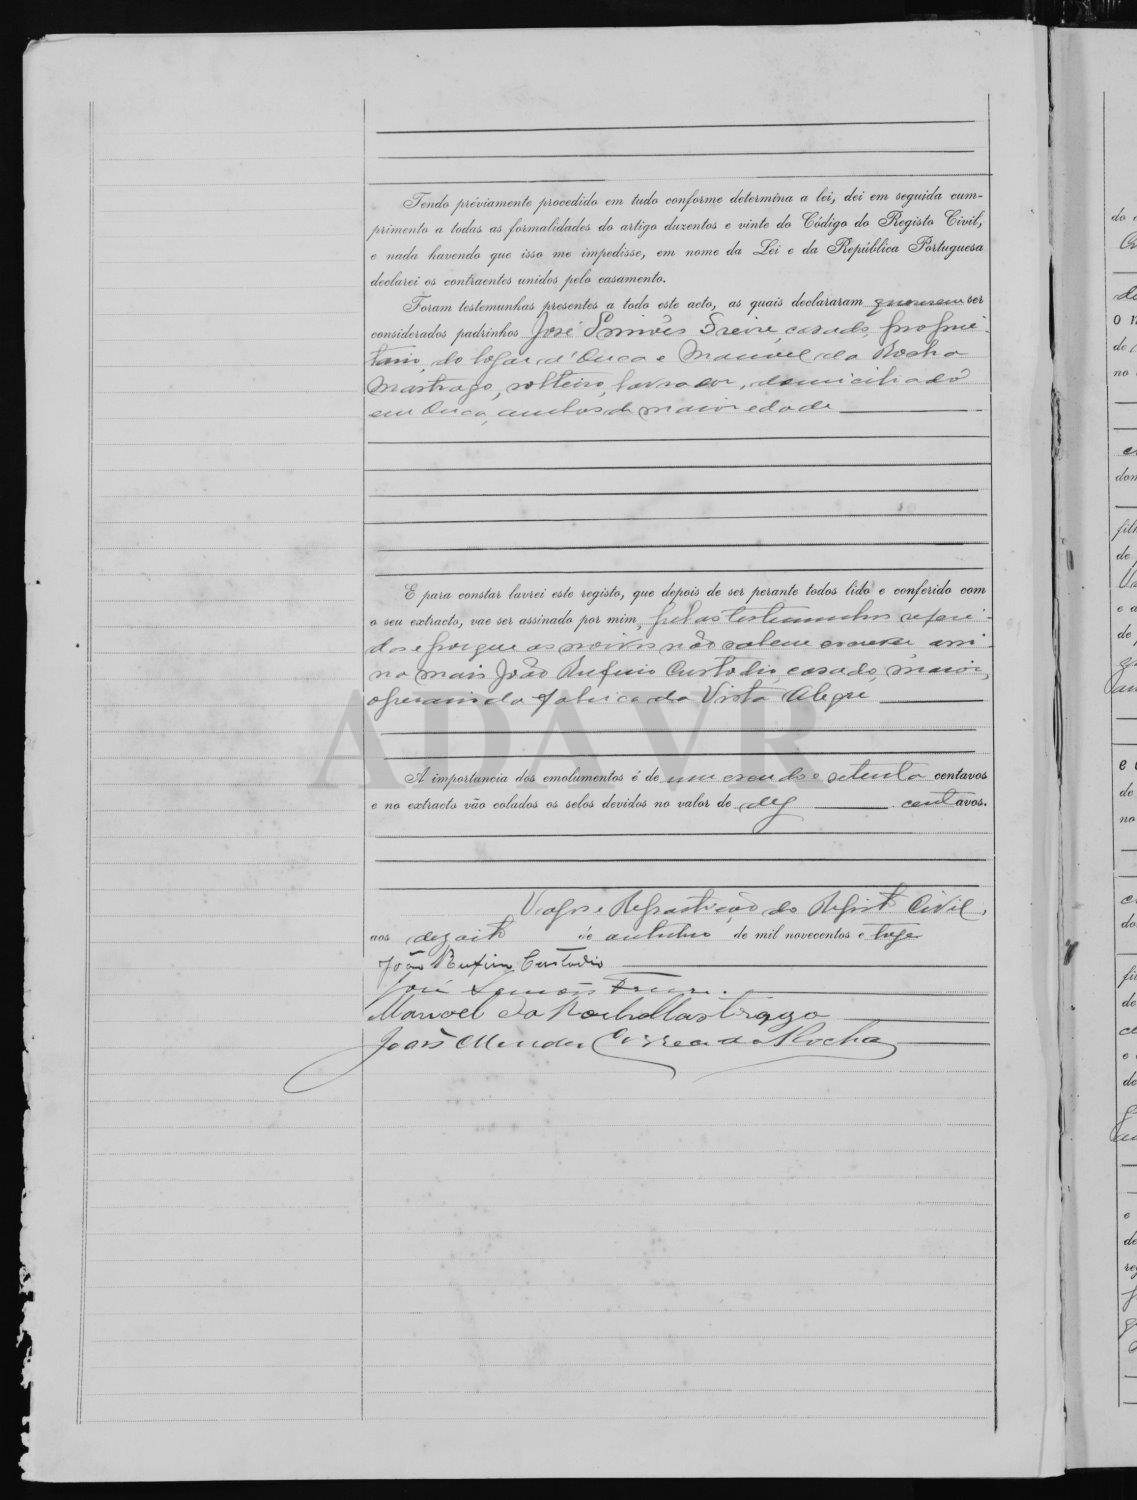 Tendo préviamente procedido em tudo conforme determina a lei, dei em seguida cum-
primento a todas as formalidades do artigo duzentos e vinte do Código do Registo Civil,
e nada havendo que isso me impedisse, em nome da Lei e da República Portuguesa
declarei os contraentes unidos pelo casamento.
Foram testemunhas presentes a todo este acto, as quais declararam quererem ser
considerados padrinhos José Simões Freire, casado, proprie-
tario, do logar d'Ouca e Manoel da Rocha
Mastrago, solteiro, lavrador, domiciliado
em Ouca, ambos de maior edade
E para constar lavrei este registo, que depois de ser perante todos lido e conferido com
o seu extracto, vae ser assinado por mim, pelas testemunhas referi-
das e porque os noivos não sabem escrever, assi-
na mais João Rufino Custodio, casado, maior,
operario da Fabrica da Vista Alegre
ADAVR
A importancia dos emolumentos é de um escudo e setenta centavos
e no extracto vão colados os selos devidos no valor de dez centavos.
Vagos e Repartição do Registo Civil,
aos dezoito de outubro de mil novecentos e treze
João Rufino Custodio
José Simões Freire.
Manoel da Rocha Mastrago
João Mendes Correia da Rocha